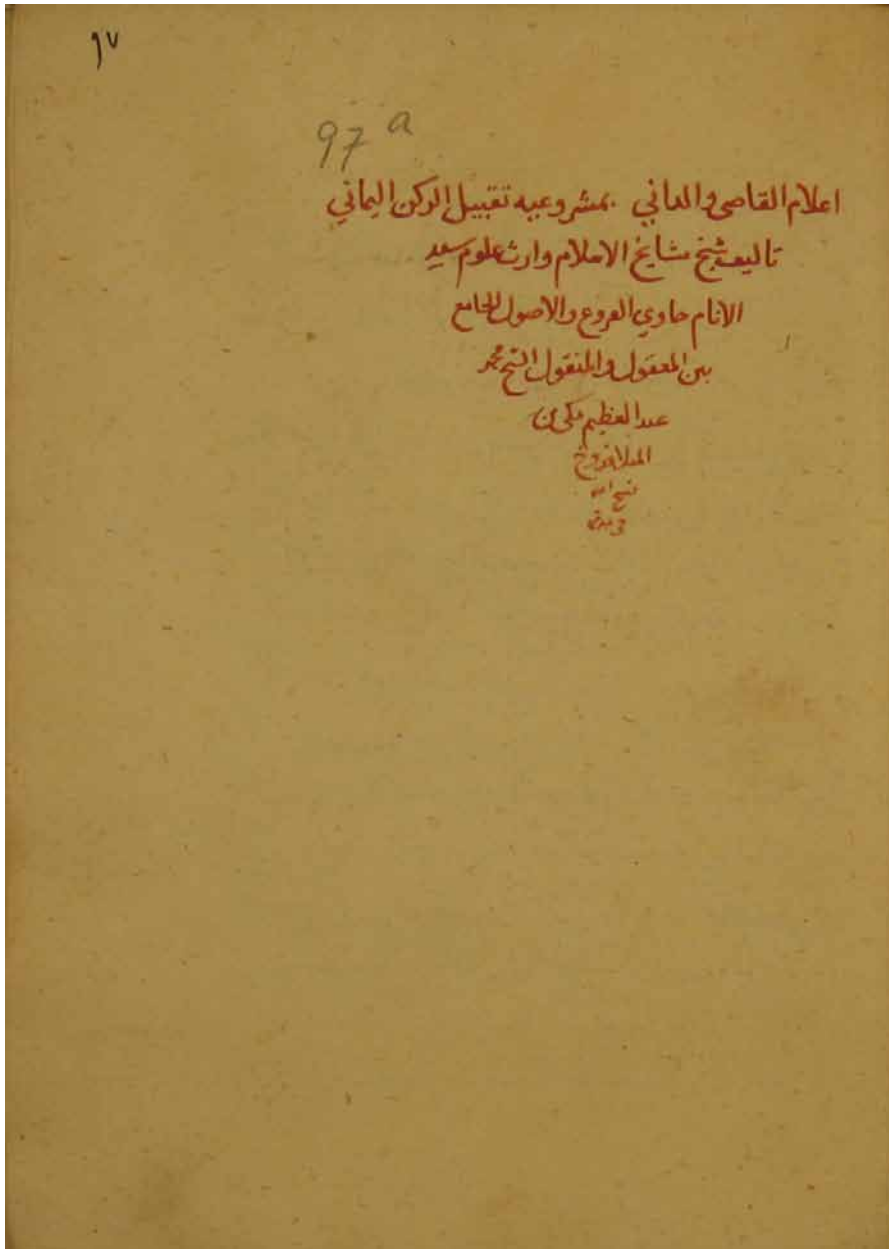 ٩٧
97 a
اعلام القاصى والدانى بمشروعيه تقبيل الركن اليماني
تاليف شيخ مشايخ الاسلام وارث علوم سيد
الانام حاوي الفروع والاصول الجامع
بين المعقول والمنقول الشيخ محمد
عبد العظيم مكي بن
المنلا فروخ
فسح الله
في مدته